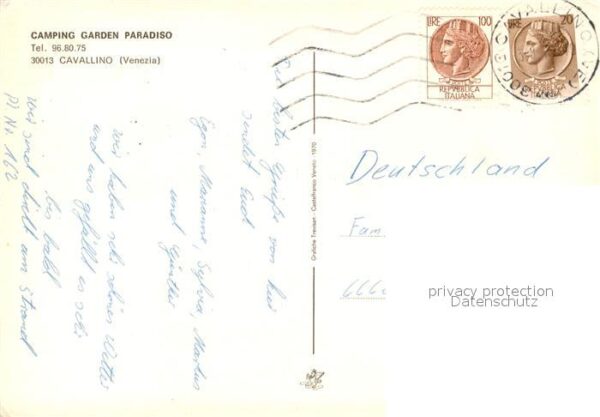 CAMPING GARDEN PARADISO
Tel. 96.80.75
30013 CAVALLINO (Venezia)
LIRE 100
REPVBBLICA
ITALIANA
LIRE 70
REPVBBLICA
ITALIANA
30013 CAVALLINO (VE)
Die besten Grüße von hier
sendet Euch
Egon, Marianne, Sylvia, Markus
und Günther
wir haben sehr schönes Wetter
und uns gefällt es sehr
bis bald
wir sind direkt am Strand
Pl Nr. 162
Grafiche Trevisan - Castelfranco Veneto - 1970
Deutschland
Fam
666
privacy protection
Datenschutz